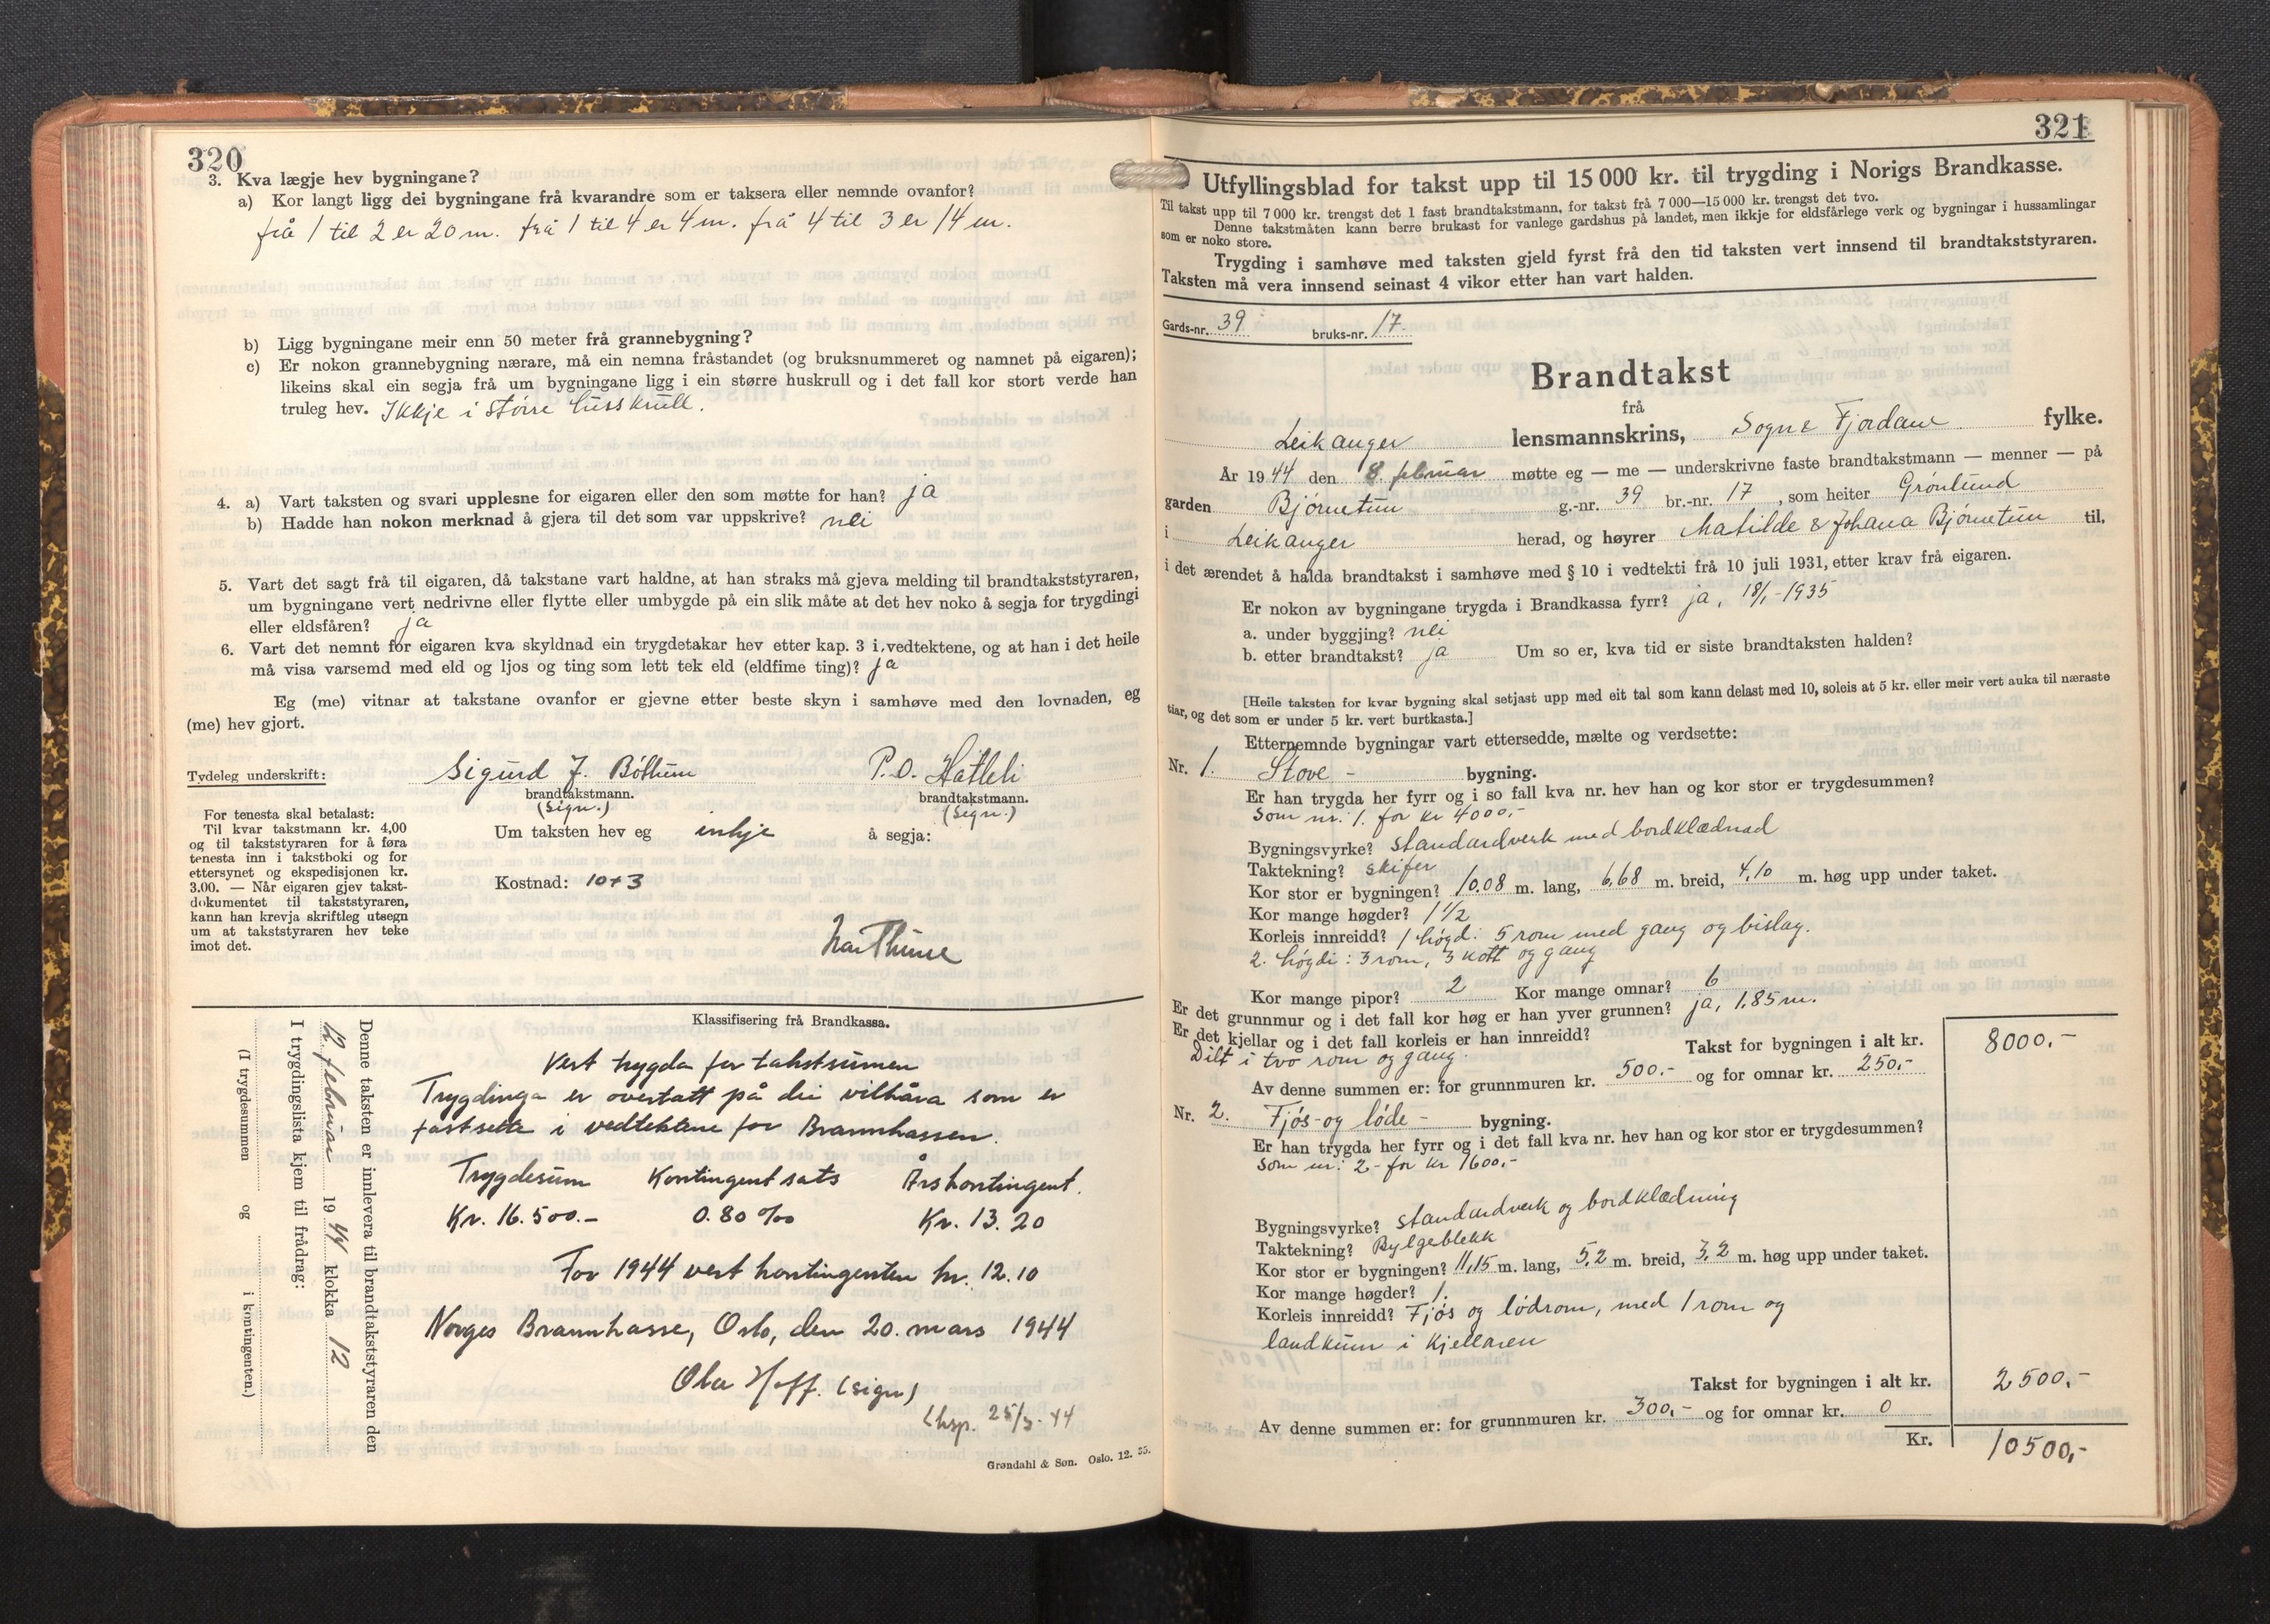 320
3. Kva lægje hev bygningane?
a) Kor langt ligg dei bygningane frå kvarandre som er taksera eller nemnde ovanfor?
frå 1 til 2 er 20 m. frå 1 til 4 er 4 m. frå 4 til 3 er 14 m.
b) Ligg bygningane meir enn 50 meter frå grannebygning?
c) Er nokon grannebygning nærare, må ein nemna fråstandet (og bruksnummeret og namnet på eigaren);
likeins skal ein segja frå um bygningane ligg i ein større huskrull og i det fall kor stort verde han
truleg hev. Ikkje i større husskrull.
4. a) Vart taksten og svari upplesne for eigaren eller den som møtte for han? ja
b) Hadde han nokon merknad å gjera til det som var uppskrive? nei
5. Vart det sagt frå til eigaren, då takstane vart haldne, at han straks må gjeva melding til brandtakststyraren,
um bygningane vert nedrivne eller flytte eller umbygde på ein slik måte at det hev noko å segja for trygdingi
eller eldsfåren? ja
6. Vart det nemnt for eigaren kva skyldnad ein trygdetakar hev etter kap. 3 i vedtektene, og at han i det heile
må visa varsemd med eld og ljos og ting som lett tek eld (eldfime ting)? ja
Eg (me) vitnar at takstane ovanfor er gjevne etter beste skyn i samhøve med den lovnaden, eg
(me) hev gjort.
Tydeleg underskrift: Sigurd J. Bóthun P. O. Hatleli
brandtakstmann. brandtakstmann.
(Sign.) (Sign.)
For tenesta skal betalast:
Til kvar takstmann kr. 4,00
og til takststyraren for å føra
tenesta inn i takstboki og for
ettersynet og ekspedisjonen kr.
3.00. — Når eigaren gjev takst-
dokumentet til takststyraren,
kann han krevja skriftleg utsegn
um at takststyraren hev teke
imot det.
Um taksten hev eg inkje å segja:
Kostnad: 10+3
Denne taksten er innlevera til brandtakststyraren den
12. februar 1944 klokka 12
I trygdingslista kjem til frådrag:
(I trygdesummen og i kontingenten.)
Klassifisering frå Brandkassa.
Vert trygda for takstsumen
Trygdinga er overtatt på dei vilkåra som er
fastsette i vedtektene for Brannkassen.
Trygdesum Kontingentsats Årskontingent.
Kr. 16.500.- 0.80 ‰ Kr. 13.20
For 1944 vert kontingenten kr. 12.10
Norges Brannkasse, Oslo, den 20. mars 1944
Olav Hoff. (sign)
Eksp. 25/3-44
Grøndahl & Søn. Oslo. 12. 35.
321
Utfyllingsblad for takst upp til 15 000 kr. til trygding i Norigs Brandkasse.
Til takst upp til 7 000 kr. trengst det 1 fast brandtakstmann, for takst frå 7 000—15 000 kr. trengst det tvo.
Denne takstmåten kann berre brukast for vanlege gardshus på landet, men ikkje for eldsfårlege verk og bygningar i hussamlingar
som er noko store.
Trygding i samhøve med taksten gjeld fyrst frå den tid taksten vert innsend til brandtakststyraren.
Taksten må vera innsend seinast 4 vikor etter han vart halden.
Gards-nr. 39 bruks-nr. 17.
Brandtakst
frå
Leikanger lensmannskrins, Sogn & Fjordane fylke.
År 1944 den 8. februar møtte eg — me — underskrivne faste brandtakstmann — menner — på
garden Bjørnetun g.-nr. 39 br.-nr. 17, som heiter Grønlund
i Leikanger herad, og høyrer Matilde & Johana Bjørnetun til,
i det ærendet å halda brandtakst i samhøve med § 10 i vedtekti frå 10 juli 1931, etter krav frå eigaren.
Er nokon av bygningane trygda i Brandkassa fyrr? ja, 18/1-1935
a. under byggjing? nei
b. etter brandtakst? ja Um so er, kva tid er siste brandtaksten halden?
[Heile taksten for kvar bygning skal setjast upp med eit tal som kann delast med 10, soleis at 5 kr. eller meir vert auka til næraste
tiar, og det som er under 5 kr. vert burtkasta.]
Etternemnde bygningar vart ettersedde, mælte og verdsette:
Nr. 1. Stove - bygning.
Er han trygda her fyrr og i so fall kva nr. hev han og kor stor er trygdesummen?
Som nr. 1. for kr 4000,-
Bygningsvyrke? standardverk med bordklædnad
Taktekning? skifer
Kor stor er bygningen? 10,08 m. lang, 6,68 m. breid, 4,10 m. høg upp under taket.
Kor mange høgder? 1 1/2
Korleis innreidd? 1 høgd: 5 rom med gang og bislag.
2. høgdi: 3 rom, 3 kott og gang
Kor mange pipor? 2 Kor mange omnar? 6
Er det grunnmur og i det fall kor høg er han yver grunnen? ja, 1.85 m.
Er det kjellar og i det fall korleis er han innreidd?
Dilt i tvo rom og gang.
Takst for bygningen i alt kr. 8000.-
Av denne summen er: for grunnmuren kr. 500.- og for omnar kr. 250.-
Nr. 2. Fjós- og løde - bygning.
Er han trygda her fyrr og i det fall kva nr. hev han og kor stor er trygdesummen?
Som nr: 2 - for kr 1600,-
Bygningsvyrke? standardverk og bordklædning
Taktekning? Bylgeblekk
Kor stor er bygningen? 11,15 m. lang, 5,2 m. breid, 3,2 m. høg upp under taket.
Kor mange høgder? 1.
Korleis innreidd? Fjøs og lødrom, med 1 rom og
landkum i kjellaren
Takst for bygningen i alt kr. 2500,-
Av denne summen er: for grunnmuren kr. 300,- og for omnar kr. 0
Kr. 10500,-